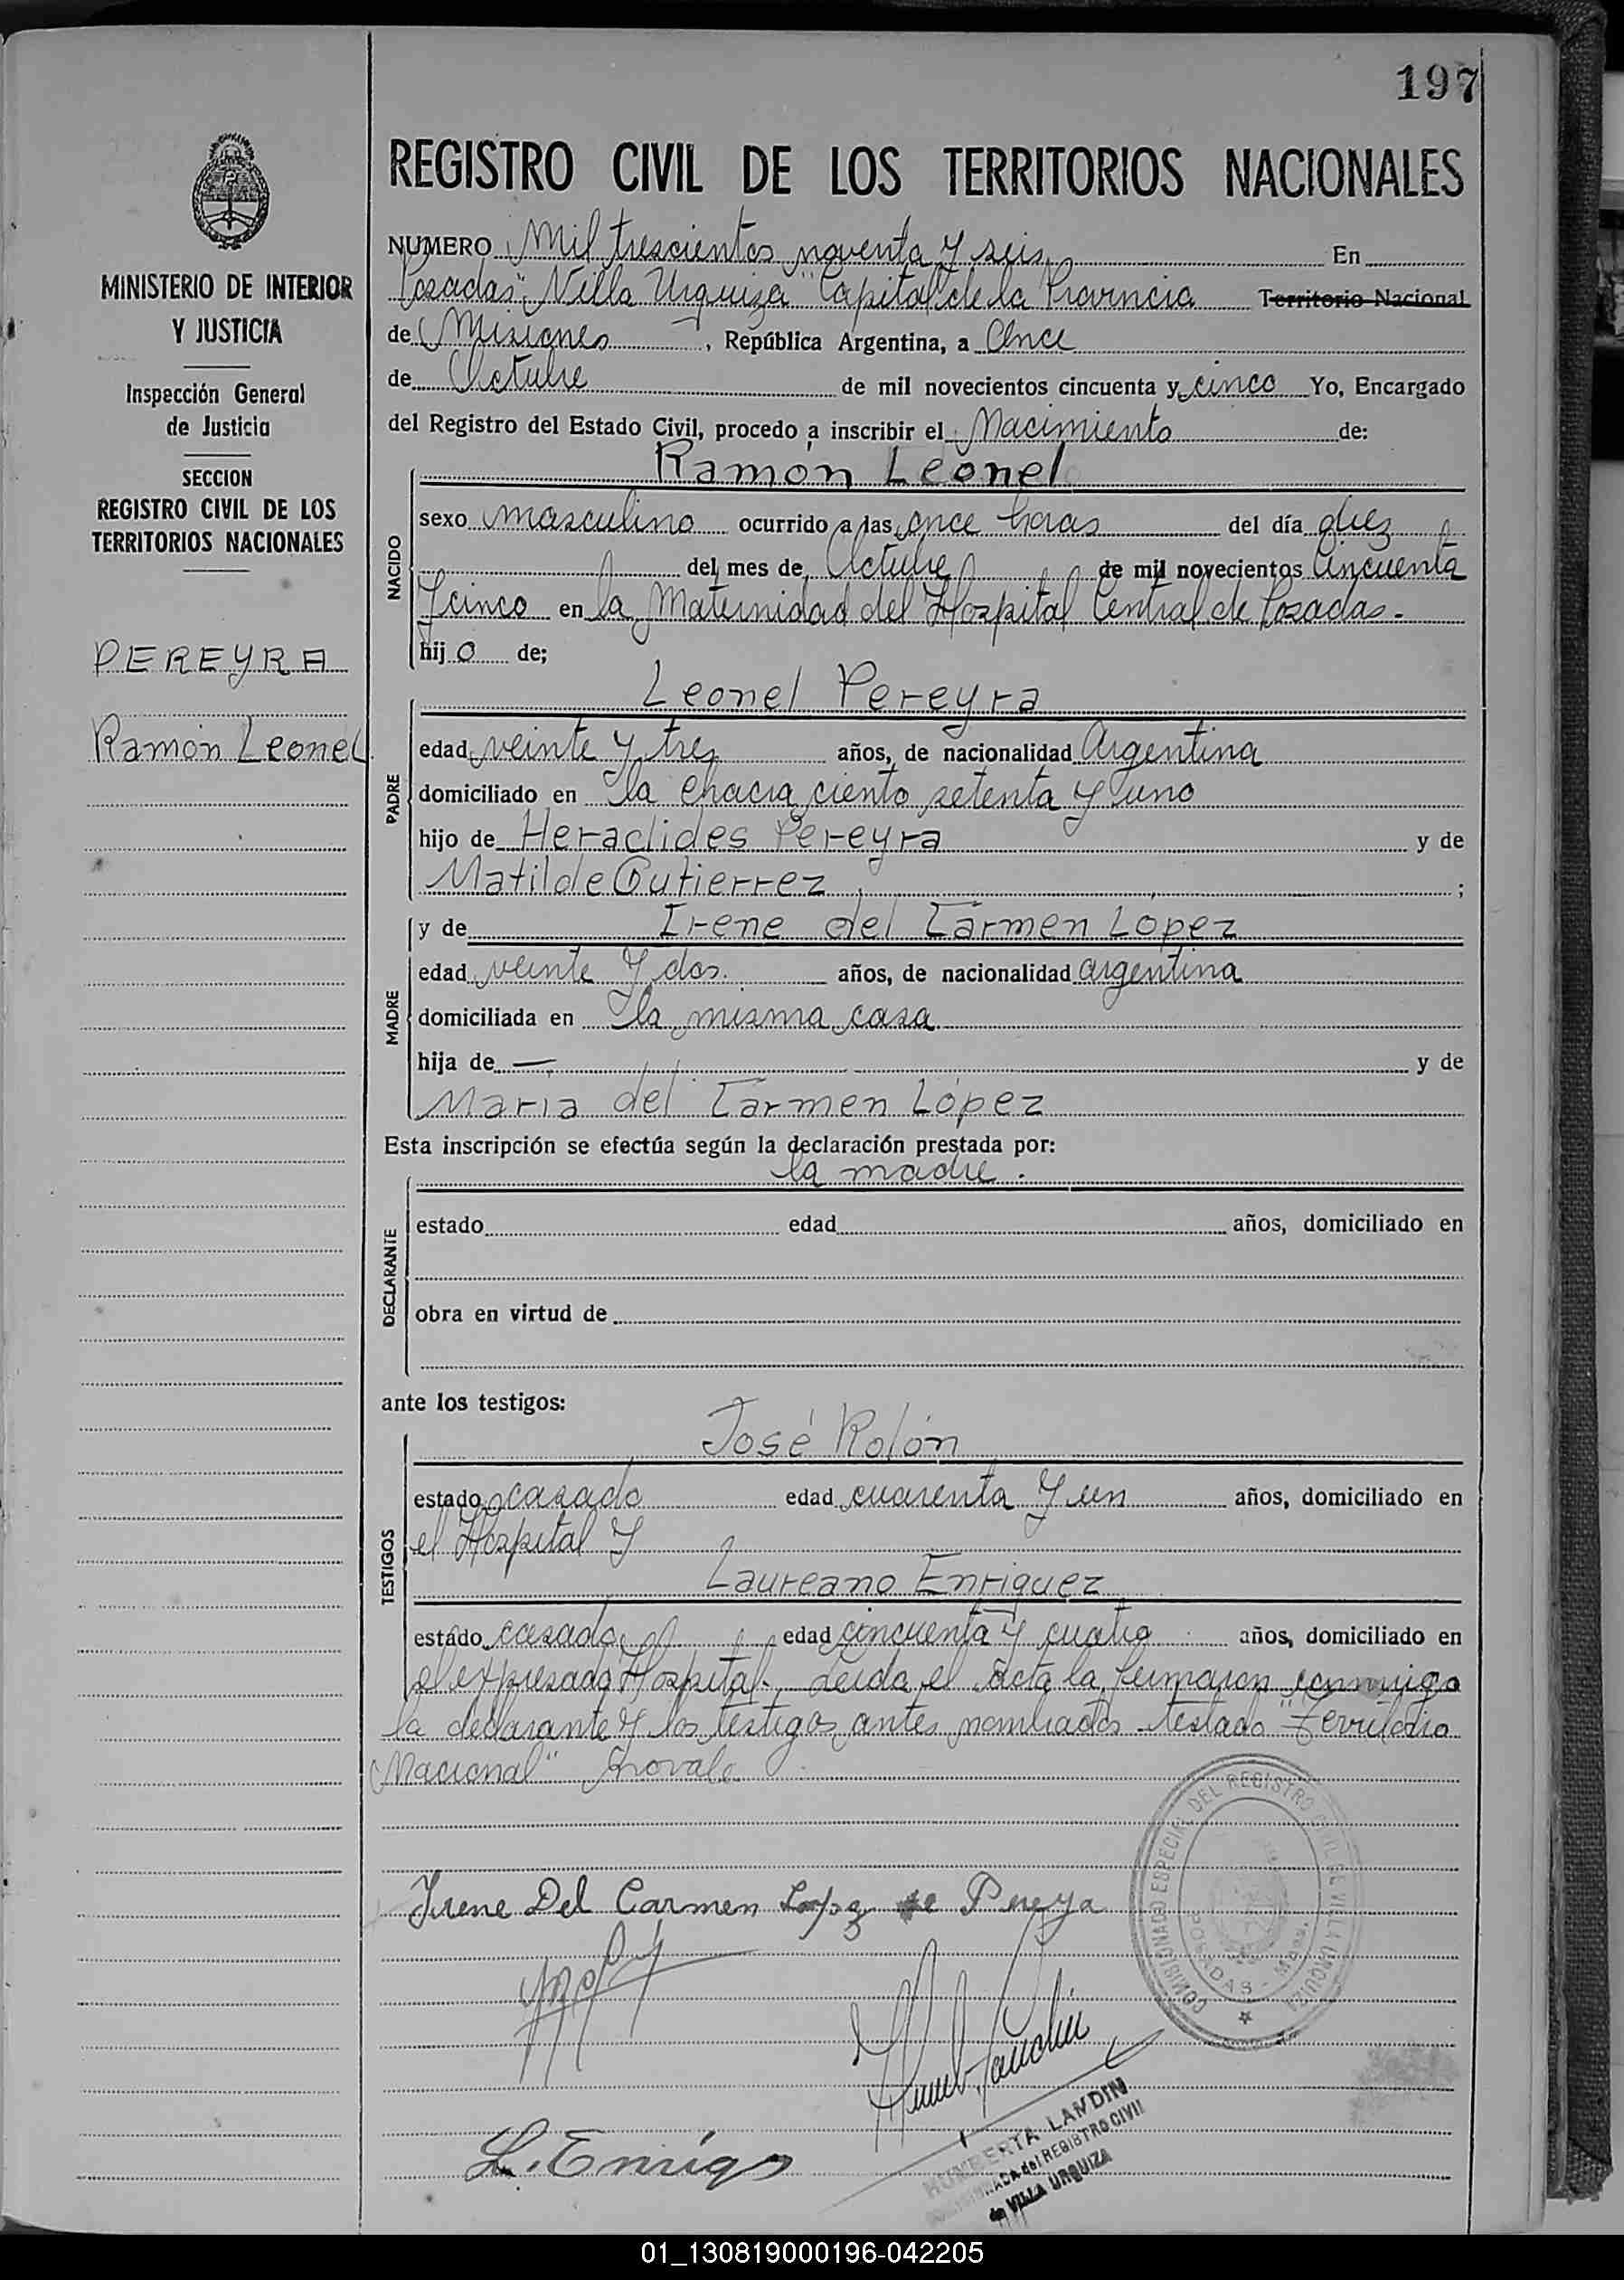 197
REGISTRO CIVIL DE LOS TERRITORIOS NACIONALES
MINISTERIO DE INTERIOR
Y JUSTICIA
Inspección General
de Justicia
SECCION
REGISTRO CIVIL DE LOS
TERRITORIOS NACIONALES
PEREYRA
Ramón Leonel
NUMERO Mil trescientos noventa y seis En
Posadas "Villa Urquiza" Capital de la Provincia Territorio Nacional
de Misiones, República Argentina, a Once
de Octubre de mil novecientos cincuenta y cinco Yo, Encargado
del Registro del Estado Civil, procedo a inscribir el Nacimiento de:
Ramón Leonel
NACIDO
sexo masculino ocurrido a las once horas del día diez
del mes de Octubre de mil novecientos Cincuenta
y cinco en la Maternidad del Hospital Central de Posadas.-
hijo de;
Leonel Pereyra
PADRE
edad veinte y tres años, de nacionalidad Argentina
domiciliado en la chacra ciento setenta y uno
hijo de Heraclides Pereyra y de
Matilde Gutierrez ;
y de Irene del Carmen López
MADRE
edad veinte y dos. años, de nacionalidad argentina
domiciliada en la misma casa
hija de — y de
Maria del Carmen López
Esta inscripción se efectúa según la declaración prestada por:
la madre.
DECLARANTE
estado edad años, domiciliado en
obra en virtud de
ante los testigos:
José Rolón
TESTIGOS
estado casado edad cuarenta y un años, domiciliado en
el Hospital y
Laureano Enriquez
estado casado edad cincuenta y cuatro años, domiciliado en
el expresado Hospital. Leida el acta la firmaron conmigo
la declarante y los testigos antes nombrados - testado "Territorio
Nacional" no vale
Irene Del Carmen Lopez de Pereyra
COMISIONADO ESPECIAL DEL REGISTRO CIVIL DE VILLA URQUIZA
POSADAS - Mnes.
HUMBERTA LANDIN
COMISIONADA del REGISTRO CIVIL
de VILLA URQUIZA
01_130819000196-042205